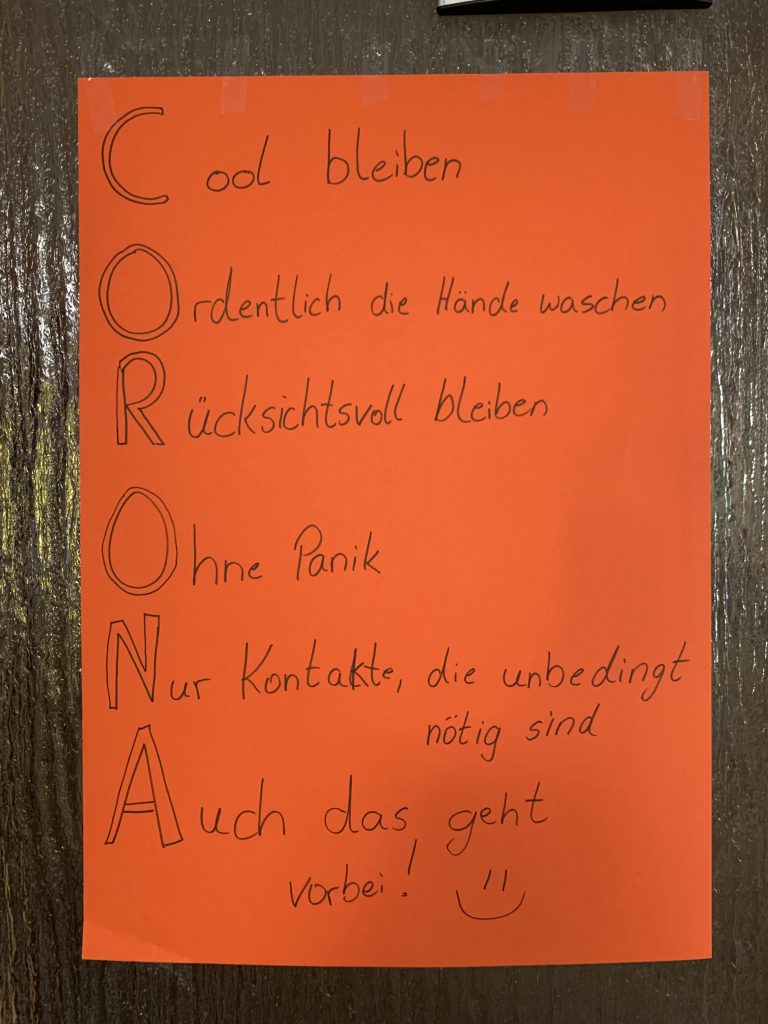 Cool bleiben
Ordentlich die Hände waschen
Rücksichtsvoll bleiben
Ohne Panik
Nur Kontakte, die unbedingt
nötig sind
Auch das geht
vorbei!